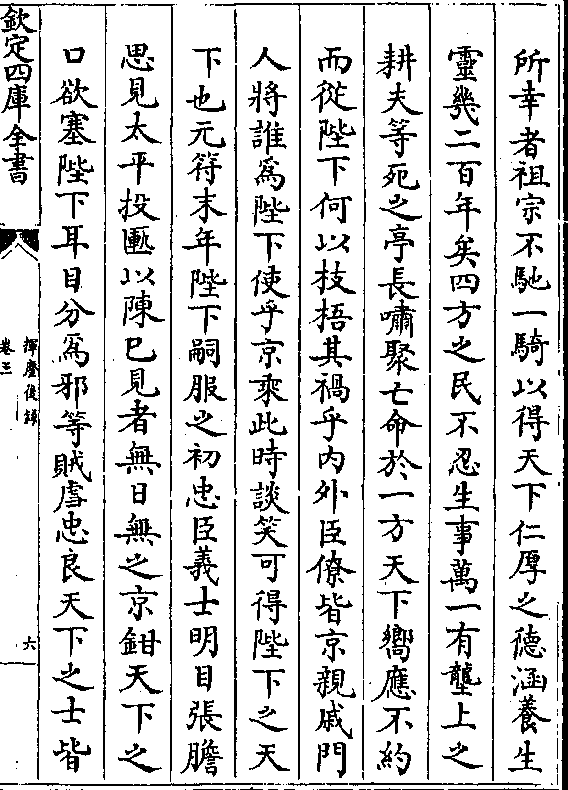 所幸者祖宗不馳一騎以得天下仁厚之德涵養生
靈幾二百年矣四方之民不忍生事萬一有壟上之
耕夫等死之亭長嘯聚亡命於一方天下嚮應不約
而從陛下何以技捂其禍乎内外臣僚皆京親戚門
人將誰為陛下使乎京乘此時談笑可得陛下之天
下也元符末年陛下嗣服之初忠臣義士明目張膽
思見太平投匭以陳已見者無日無之京鉗天下之
口欲塞陛下耳目分為邪等賊虐忠良天下之士皆
欽定四庫全書
揮麈後録
卷三
六